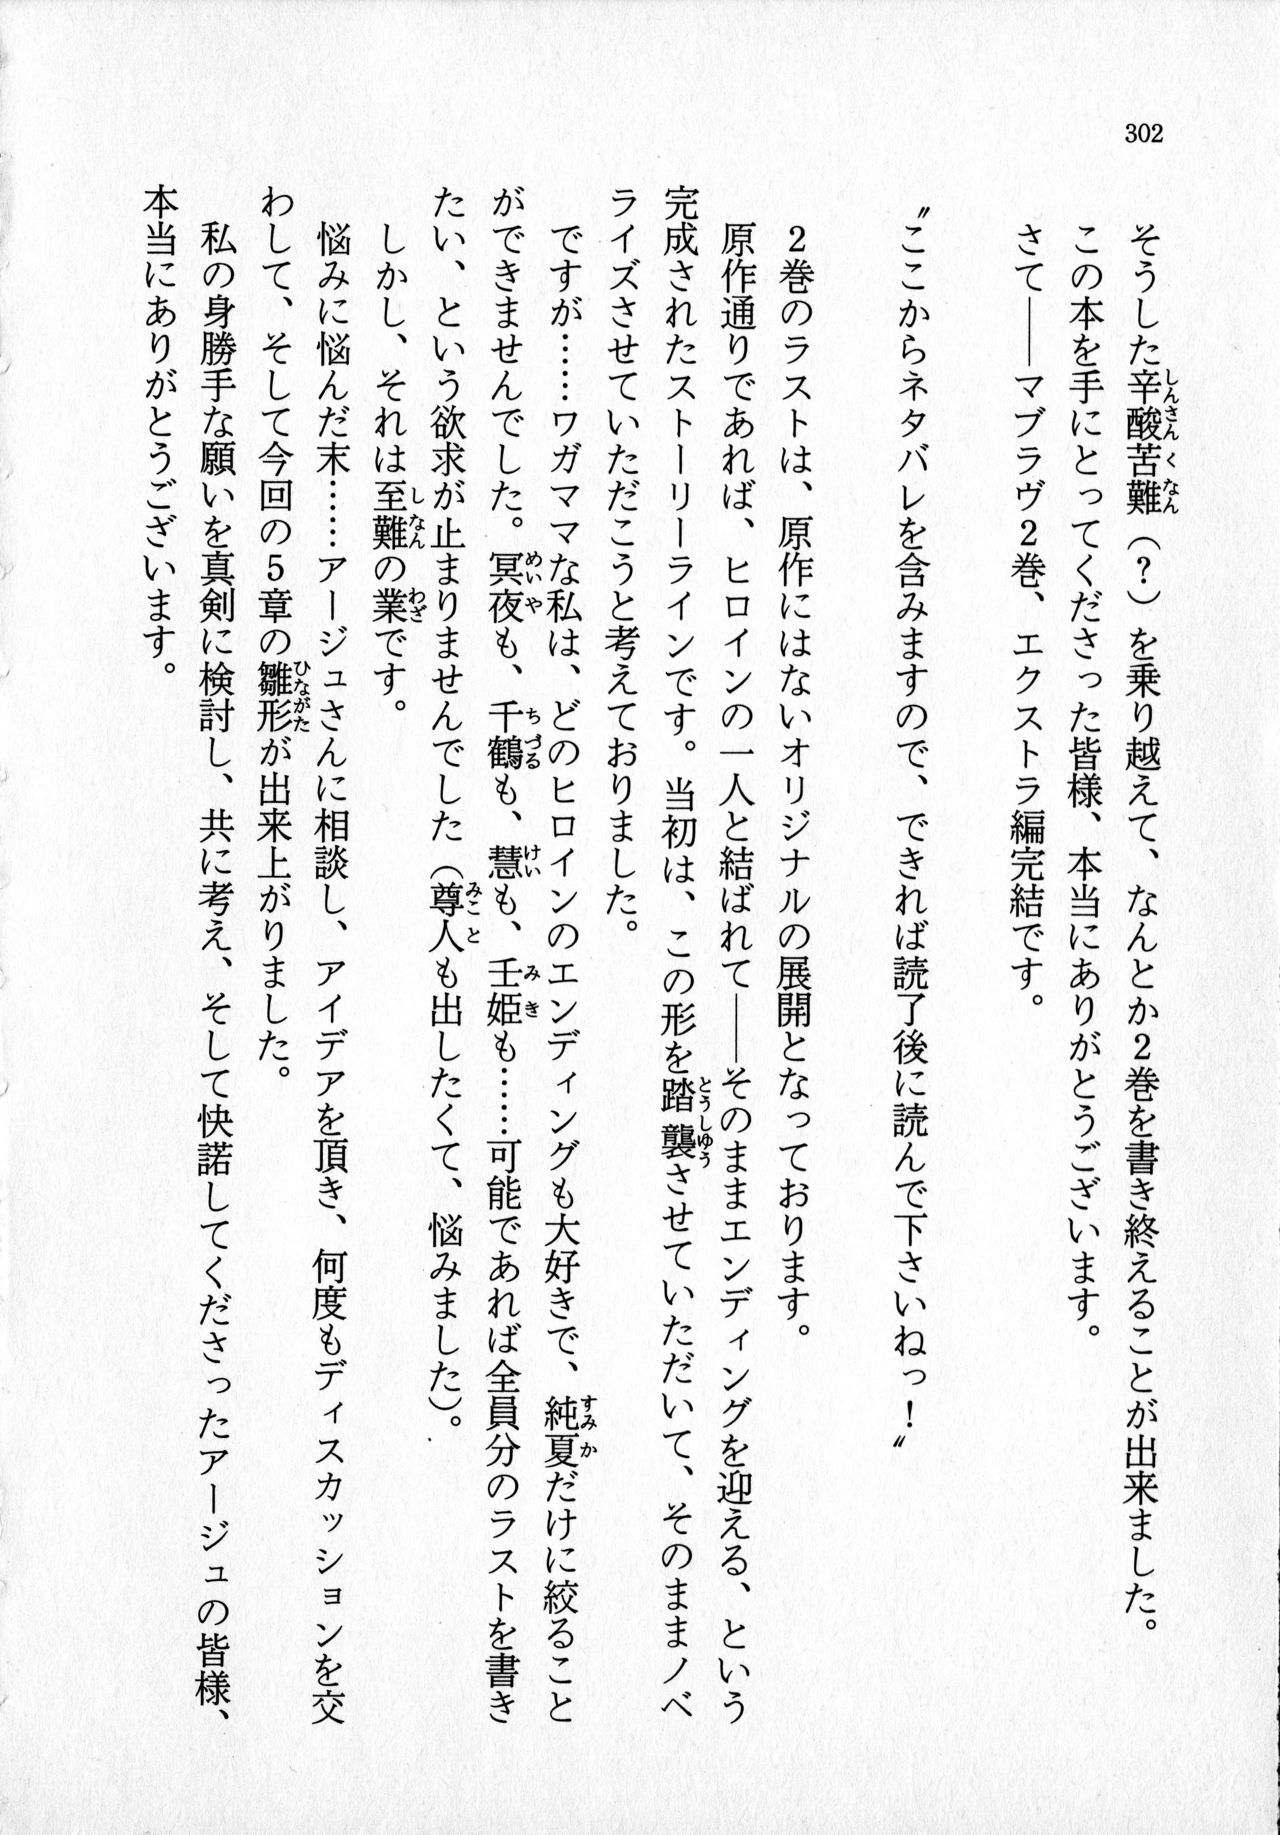 302
そうした辛酸苦難（？）を乗り越えて、なんとか2巻を書き終えることが出来ました。
この本を手にとってくださった皆様、本当にありがとうございます。
さて――マブラヴ2巻、エクストラ編完結です。
〝ここからネタバレを含みますので、できれば読了後に読んで下さいねっ！〟
2巻のラストは、原作にはないオリジナルの展開となっております。
原作通りであれば、ヒロインの一人と結ばれて――そのままエンディングを迎える、という
完成されたストーリーラインです。当初は、この形を踏襲させていただいて、そのままノベ
ライズさせていただこうと考えておりました。
ですが……ワガママな私は、どのヒロインのエンディングも大好きで、純夏だけに絞ること
ができませんでした。冥夜も、千鶴も、慧も、壬姫も……可能であれば全員分のラストを書き
たい、という欲求が止まりませんでした（尊人も出したくて、悩みました）。
しかし、それは至難の業です。
悩みに悩んだ末……アージュさんに相談し、アイデアを頂き、何度もディスカッションを交
わして、そして今回の5章の雛形が出来上がりました。
私の身勝手な願いを真剣に検討し、共に考え、そして快諾してくださったアージュの皆様、
本当にありがとうございます。